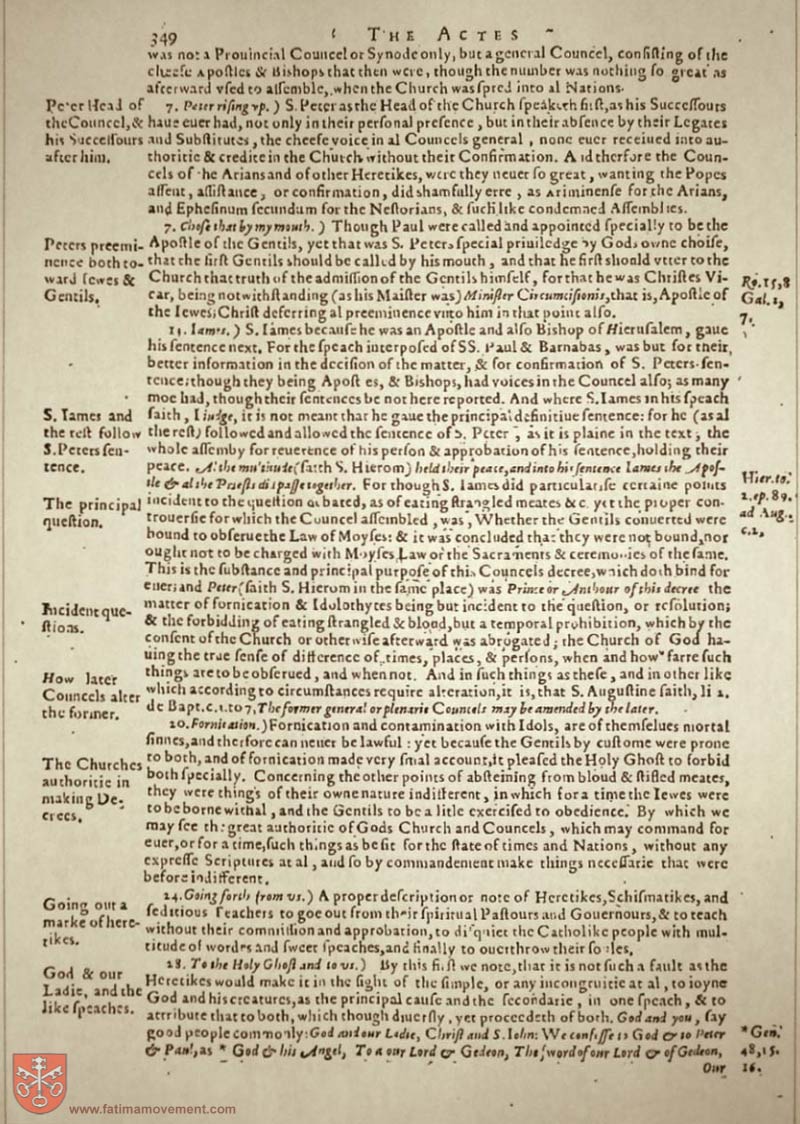 349
THE ACTES
was not a Prouincial Councel or Synode only, but a general Councel, consisting of the
cheefe Apostles & Bishops that then were, though the number was nothing so great as
afterward vsed to assemble, when the Church was spred into al Nations.
Peter Head of
the Councel, &
his Successours
after him.
7. Peter rising vp.) S. Peter as the Head of the Church speaketh first, as his Successours
haue euer had, not only in their personal presence, but in their absence by their Legates
and Substitutes, the cheefe voice in al Councels general, none euer receiued into au-
thoritie & credite in the Church without their Confirmation. And therfore the Coun-
cels of the Arians and of other Heretikes, were they neuer so great, wanting the Popes
assent, assistance, or confirmation, did shamfully erre, as Ariminense for the Arians,
and Ephesinum secundum for the Nestorians, & such like condemned Assemblies.
Peters preemi-
nence both to-
ward Iewes &
Gentils.
7. Chose that by my mouth.) Though Paul were called and appointed specially to be the
Apostle of the Gentils, yet that was S. Peters special priuiledge by Gods owne choise,
that the first Gentils should be called by his mouth, and that he first should vtter to the
Church that truth of the admission of the Gentils himself, for that he was Christes Vi-
car, being notwithstanding (as his Maister was) Minister Circumcisionis, that is, Apostle of
the Iewes; Christ deferring al preeminence vnto him in that point also.
Ro. 15,8
Gal. 2,
7.
13. Iames.) S. Iames because he was an Apostle and also Bishop of Hierusalem, gaue
his sentence next. For the speach interposed of SS. Paul & Barnabas, was but for their
better information in the decision of the matter, & for confirmation of S. Peters sen-
tence: though they being Apostles, & Bishops, had voices in the Councel also; as many
moe had, though their sentences be not here reported. And where S. Iames in his speach
saith, I iudge, it is not meant that he gaue the principal definitiue sentence: for he (as al
the rest) followed and allowed the sentence of S. Peter, as it is plaine in the text, the
whole assemby for reuerence of his person & approbation of his sentence, holding their
peace. Al the multitude (saith S. Hierom) held their peace, and into his sentence Iames the Apos-
tle & al the Priests did passe together. For though S. Iames did particularise certaine points
incident to the question debated, as of eating strangled meates &c. yet the proper con-
trouersie for which the Councel assembled, was, Whether the Gentils conuerted were
bound to obserue the Law of Moyses: & it was concluded that they were not bound, nor
ought not to be charged with Moyses Law or the Sacraments & ceremonies of the same.
This is the substance and principal purpose of this Councels decree, which doth bind for
euer; and Peter (saith S. Hierom in the same place) was Prince or Authour of this decree the
matter of fornication & Idolothytes being but incident to the question, or resolution;
& the forbidding of eating strangled & bloud, but a temporal prohibition, which by the
consent of the Church or otherwise afterward was abrogated; the Church of God ha-
uing the true sense of difference of times, places, & persons, when and how farre such
things are to be obserued, and when not. And in such things as these, and in other like
which according to circumstances require alteration, it is, that S. Augustine saith, li 2.
de Bapt. c. 3. to 7, The former general or plenarie Councels may be amended by the later.
S. Iames and
the rest follow
S. Peters sen-
tence.
The principal
question.
Incident que-
stions.
How later
Councels alter
the former.
Hier. to.
2. ep. 89.
ad Aug.
c. 2.
20. Fornication.) Fornication and contamination with Idols, are of themselues mortal
sinnes, and therfore can neuer be lawful: yet because the Gentils by custome were prone
to both, and of fornication made very smal account, it pleased the Holy Ghost to forbid
both specially. Concerning the other points of absteining from bloud & stifled meates,
they were things of their owne nature indifferent, in which for a time the Iewes were
to be borne withal, and the Gentils to be a litle exercised to obedience. By which we
may see the great authoritie of Gods Church and Councels, which may command for
euer, or for a time, such things as be fit for the state of times and Nations, without any
expresse Scriptures at al, and so by commandement make things necessarie that were
before indifferent.
The Churches
authoritie in
making De-
crees.
24. Going forth from vs.) A proper description or note of Heretikes, Schismatikes, and
seditious Teachers to goe out from their spiritual Pastours and Gouernours, & to teach
without their commission and approbation, to disquiet the Catholike people with mul-
titude of wordes and sweet speaches, and finally to ouerthrow their soules.
Going out a
marke of here-
tikes.
28. To the Holy Ghost and to vs.) By this first we note, that it is not such a fault as the
Heretikes would make it in the sight of the simple, or any incongruitie at al, to ioyne
God and his creatures, as the principal cause and the secondarie, in one speach, & to
attribute that to both, which though diuersly, yet proceedeth of both. God and you, say
good people commonly: God and our Ladie, Christ and S. Iohn: We confesse to God & to Peter
& Paul, as * God & his Angel, To our Lord & Gedeon, The sword of our Lord & of Gedeon,
God & our
Ladie, and the
like speaches.
* Gen.
48,15.
16.
Our
www.fatimamovement.com